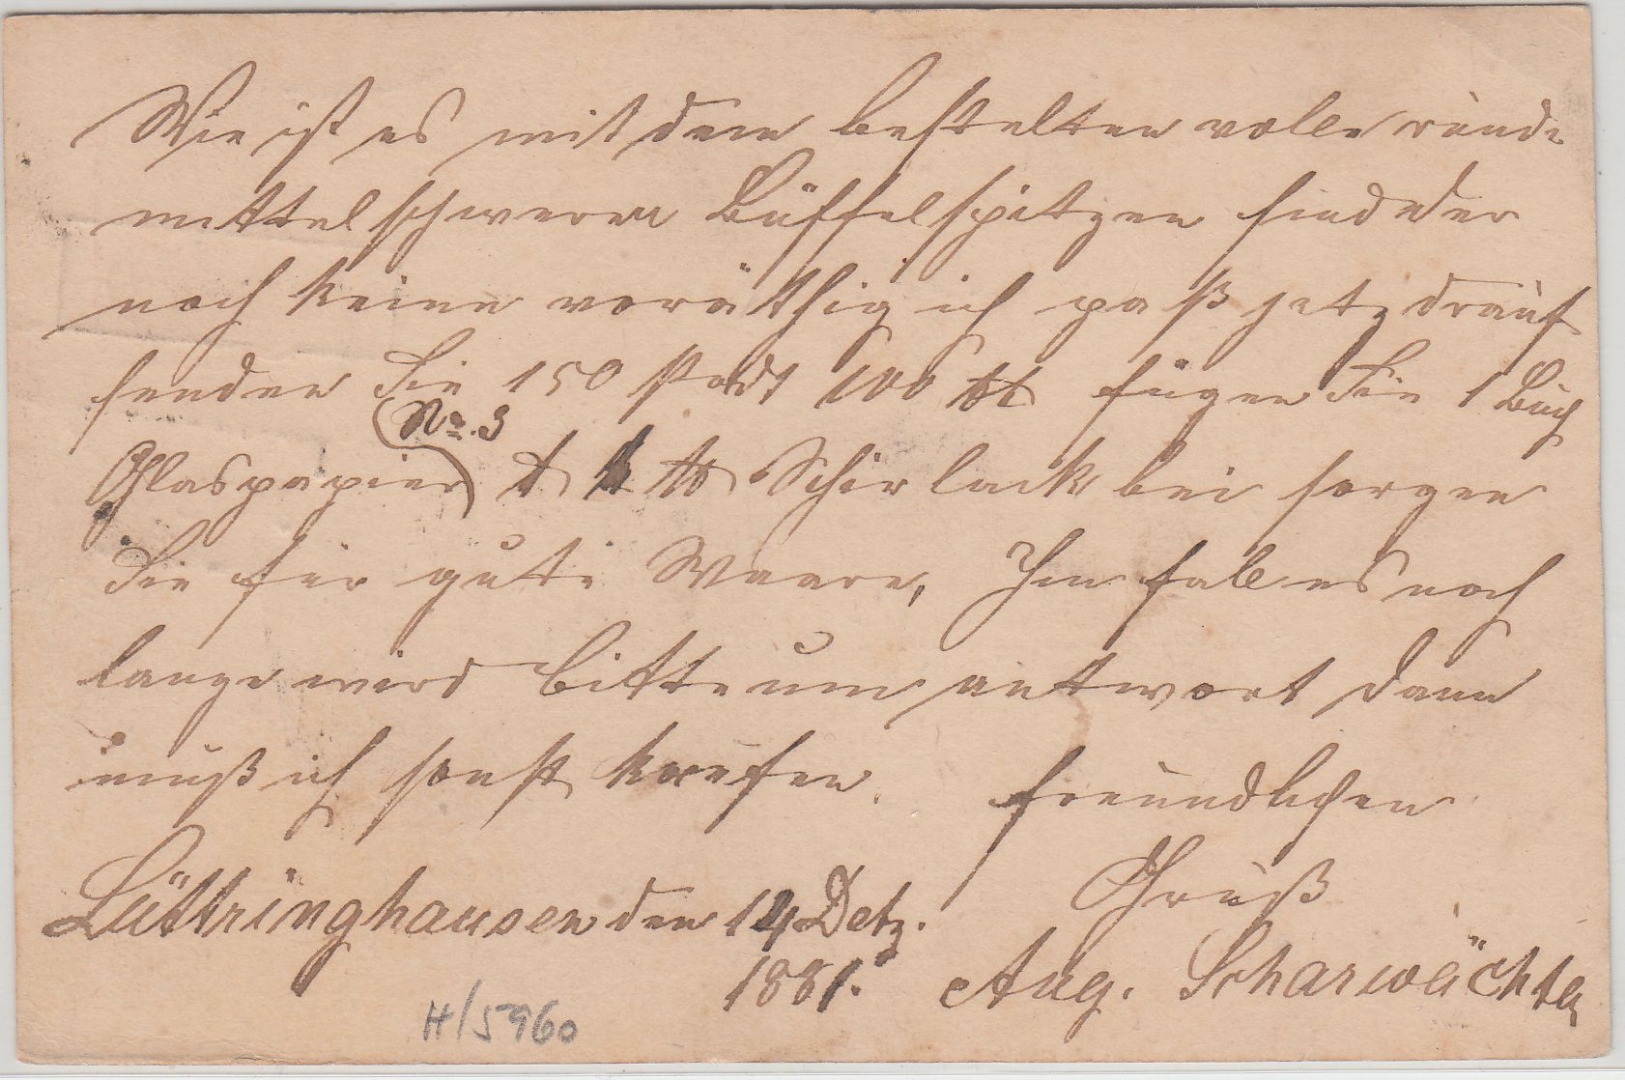 Wie ist es mit dem bestelten volle runde
mittelschweren Büffelspitzen sind der
noch keine voräthig ich paß jetz drauf
senden Sie 150 stadt 100 ℔ fügen Sie 1 Buch
No. 3
Glaspapier ℔ Scher lack bei sorgen
Sie für gute Waare, Im fall es noch
lange wird bitte um antwort dann
muß ich sonst kaufen. freundlichen
Gruß
Lüttringhausen den 14 Detz.
1881. Aug. Scharwächter
H/5960